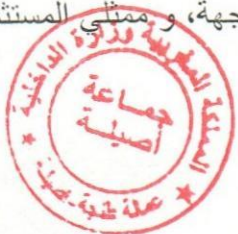 جهة، و ممثلي المستث
المملكة المغربية وزارة الداخلية
جماعة
أصيلة
عمالة طنجة-أصيلة